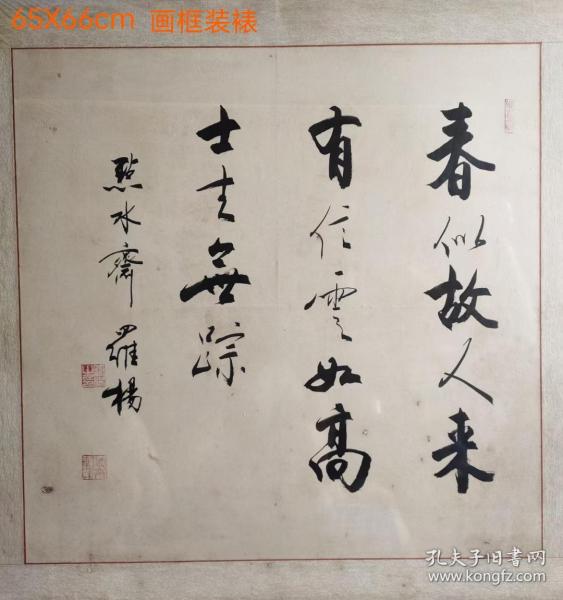 65X66cm 画框装裱
春似故人来
有信雲如高
士去無踪
點水齋 羅楊
孔夫子旧书网
www.kongfz.com